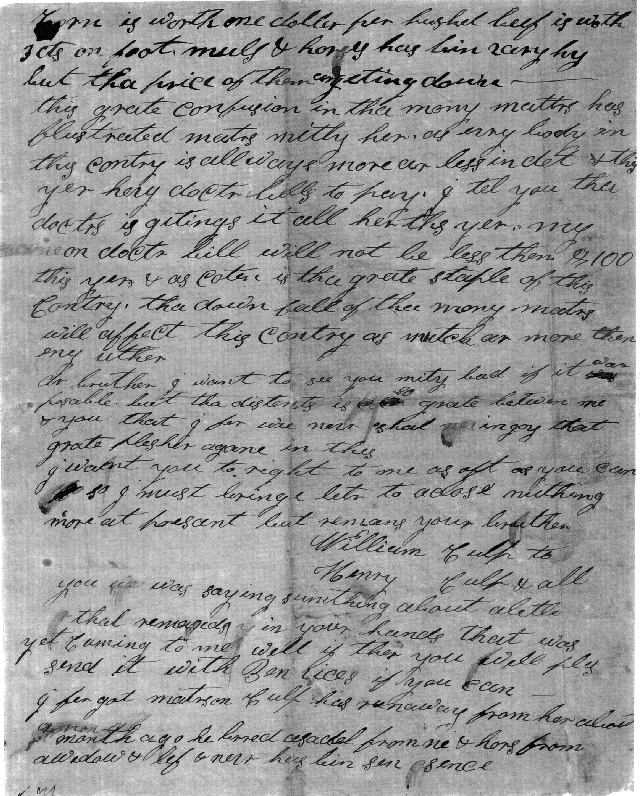 Corn is worth one dollar per bushel beef is woth
3 cts on foot. muls & horses has bin vary hy
but tha price of them are giting down
this grate confusion in tha mony matrs has
flustrated matrs mitly her. as evry body in
this contry is allways more ar less in det & this
yer hevy doctr bills to pay. I tel you tha
doctrs is gitings it all her ths yer. my
on doctr bill will not be less then $100
this yer & as coten is tha grate staple of this
Contry. tha down fall of tha mony matrs
will affect this Contry as mutch ar more then
eny uther
dr bruther I want to see you mity bad if it was
posable but tha distents is so grate between me
& you that I fer we never shal ingoy that
grate plesher agane in this
I waint you to right to me as oft as you can
so I must bringe letr to a close nuthing
more at present but remans your bruther
William Culp to
Henry Culp & all
you was saying sumthing about a letle
that remained in your hands that was
yet Coming to me well if ther you will pls
send it with Ben if you can
I fergot matrson Culp has runaway from her about
a month ago he borred a sadel from me & hors from
a widow & lef & nevr has bin sen sence